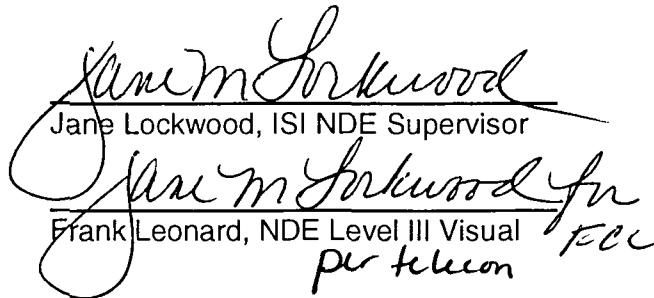 Jane M Lockwood
Jane Lockwood, ISI NDE Supervisor
Jane M Lockwood for
Frank Leonard, NDE Level III Visual FCL
per telecon